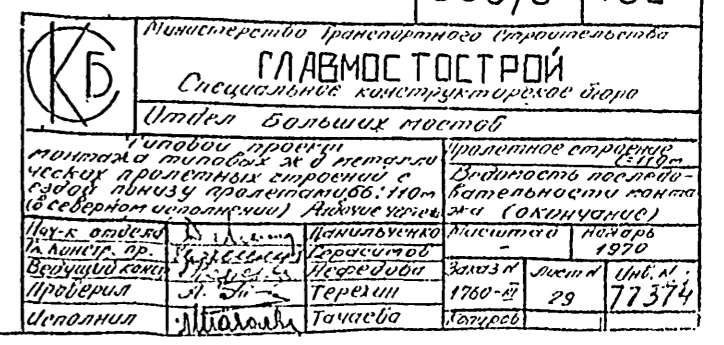 СКБ
Министерство Транспортного Строительства
ГЛАВМОСТОСТРОЙ
Специальное конструкторское бюро
Отдел Больших мостов
Типовой проект
монтажа типовых ж д металли
ческих пролетных строений с
ездой понизу пролетами 66÷110м
(в северном исполнении) Рабочие чертежи
Пролетное строение
L=110м
Ведомость последо-
вательности монта
жа (окончание)
Нач-к отдела Данильченко
Гл. констр. пр. Герасимов
Ведущий конст Нефедова
Проверил Терехин
Исполнил Тачаева
Масштаб -
Ноябрь 1970
Заказ N 1760-III
Лист N 29
Инв. N: 77374
Копиров